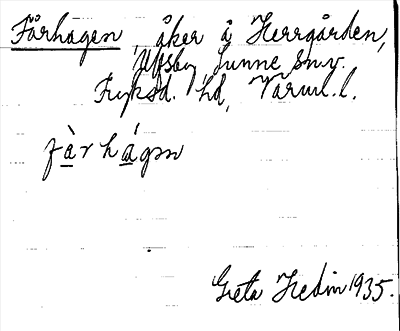 Fårhagen, åker å Herrgården,
Ulfsby Sunne sn.v.
Fryksd. hd, Värml.l.
fàrhágən
Greta Hedin 1935.